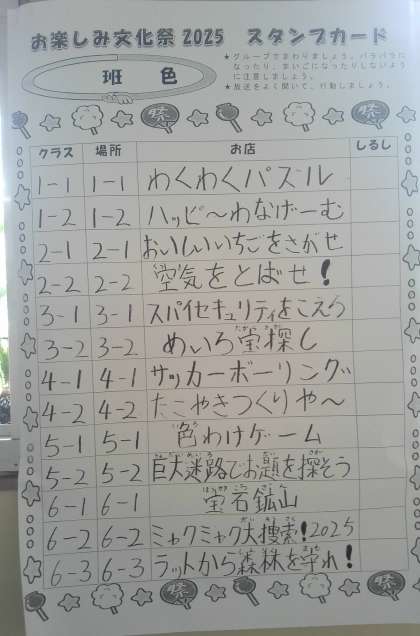 お楽しみ文化祭2025 スタンプカード
班 色
★グループでまわりましょう。バラバラに
なったり、まいごになったりしないよう
に注意しましょう。
★放送をよく聞いて、行動しましょう。
祭 祭 祭
クラス 場所 お店 しるし
1-1 1-1 わくわくパズル
1-2 1-2 ハッピ〜わなげーむ
2-1 2-1 おいしいいちごをさがせ
2-2 2-2 空気をとばせ!
3-1 3-1 スパイセキュリティをこえろ
3-2 3-2 めいろ宝探し
4-1 4-1 サッカーボーリング
4-2 4-2 たこやきつくりや〜
5-1 5-1 色わけゲーム
5-2 5-2 巨大迷路でお題を探そう
6-1 6-1 宝石鉱山
6-2 6-2 ミャクミャク大捜索!2025
6-3 6-3 ラットから森林を守れ!
祭 祭